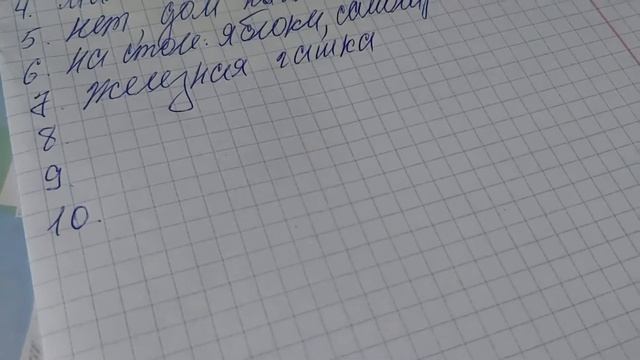 4.
5. нет, дом
6. на столе: яблоки,
7. железная гашка
8.
9.
10.